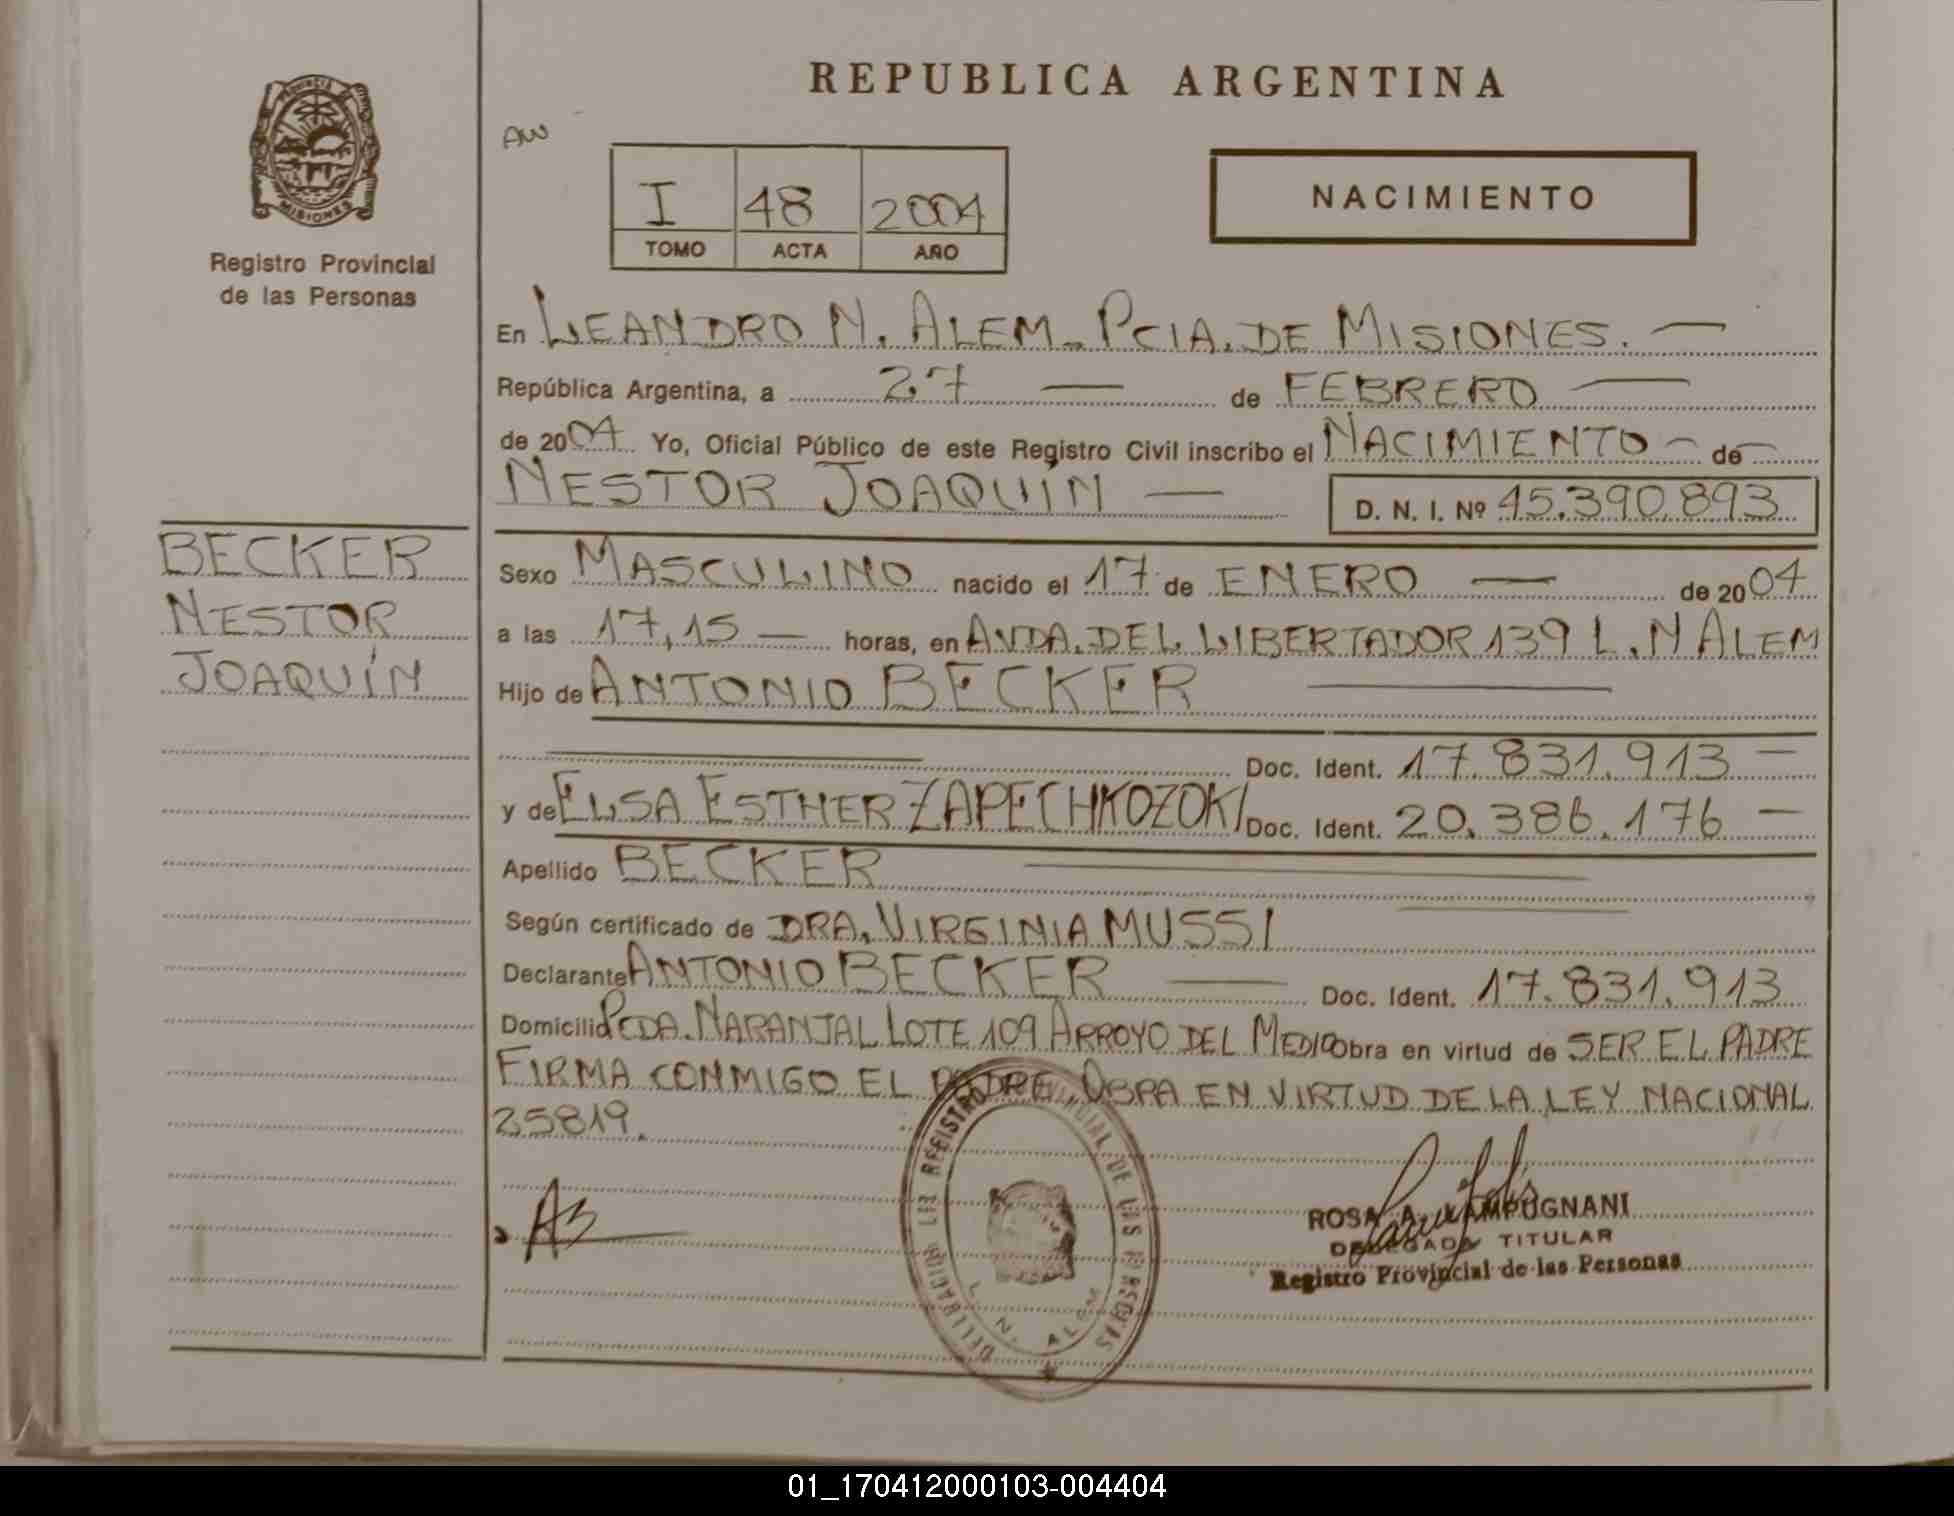 REPUBLICA ARGENTINA
MISIONES
Registro Provincial
de las Personas
AW
I 48 2004
TOMO ACTA AÑO
NACIMIENTO
En LEANDRO N. ALEM. PCIA. DE MISIONES.
República Argentina, a 27 de FEBRERO
de 2004 Yo, Oficial Público de este Registro Civil inscribo el NACIMIENTO de
NESTOR JOAQUIN D. N. I. Nº 45.390.893
BECKER
NESTOR
JOAQUÍN
Sexo MASCULINO nacido el 17 de ENERO de 2004
a las 17,15 horas, en AVDA. DEL LIBERTADOR 139 L. N ALEM
Hijo de ANTONIO BECKER
Doc. Ident. 17.831.913
y de ELSA ESTHER ZAPECHKOZOKI Doc. Ident. 20.386.176
Apellido BECKER
Según certificado de DRA. VIRGINIA MUSSI
Declarante ANTONIO BECKER Doc. Ident. 17.831.913
Domicilio PCDA. NARANJAL LOTE 109 ARROYO DEL MEDIO obra en virtud de SER EL PADRE
FIRMA CONMIGO EL PADRE OBRA EN VIRTUD DE LA LEY NACIONAL
25819.
AB
REGISTRO PROVINCIAL DE LAS PERSONAS
L. N. ALEM
ROSA A. LAMPUGNANI
DELEGADA TITULAR
Registro Provincial de las Personas
01_170412000103-004404